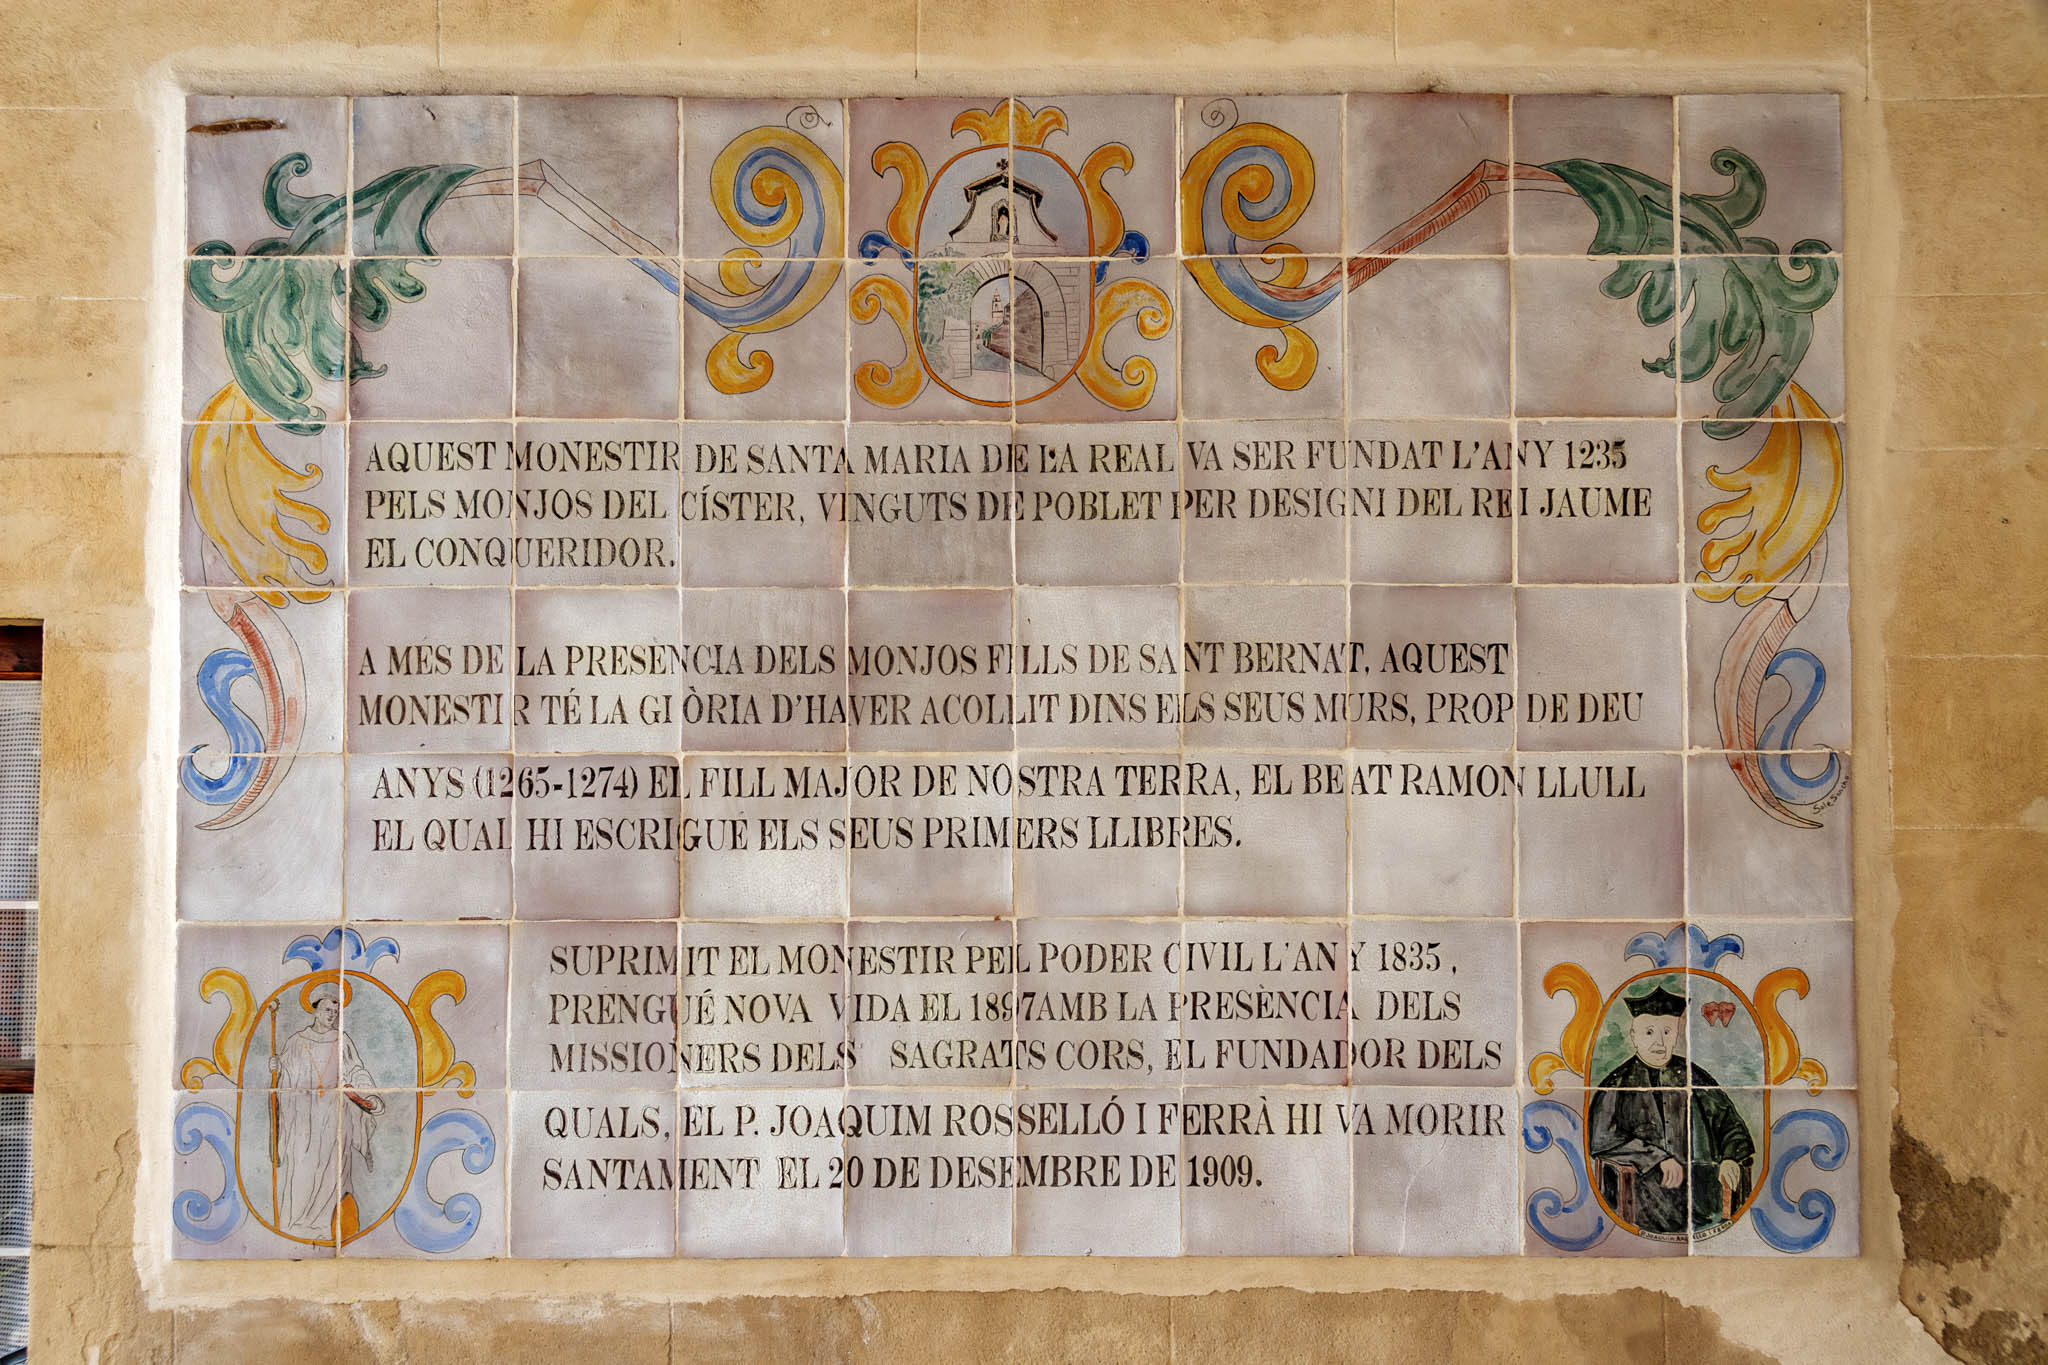 AQUEST MONESTIR DE SANTA MARIA DE LA REAL VA SER FUNDAT L'ANY 1235
PELS MONJOS DEL CÍSTER, VINGUTS DE POBLET PER DESIGNI DEL REI JAUME
EL CONQUERIDOR.
A MÉS DE LA PRESÈNCIA DELS MONJOS FILLS DE SANT BERNAT, AQUEST
MONESTIR TÉ LA GLÒRIA D'HAVER ACOLLIT DINS ELS SEUS MURS, PROP DE DEU
ANYS (1265-1274) EL FILL MAJOR DE NOSTRA TERRA, EL BEAT RAMON LLULL
EL QUAL HI ESCRIGUÉ ELS SEUS PRIMERS LLIBRES.
SUPRIMIT EL MONESTIR PEL PODER CIVIL L'ANY 1835,
PRENGUÉ NOVA VIDA EL 1897 AMB LA PRESÈNCIA DELS
MISSIONERS DELS SAGRATS CORS, EL FUNDADOR DELS
QUALS, EL P. JOAQUIM ROSSELLÓ I FERRÀ HI VA MORIR
SANTAMENT EL 20 DE DESEMBRE DE 1909.